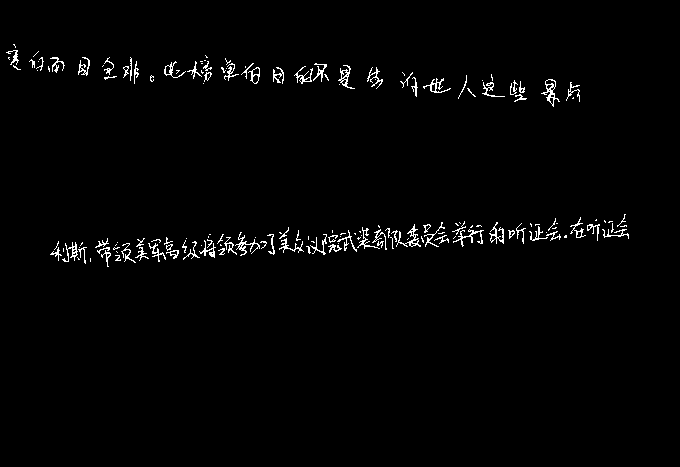 变的面目全非。此榜单的目的不是告诉世人这些景点
利斯,带领美军高级将领参加了美众议院武装部队委员会举行的听证会.在听证会